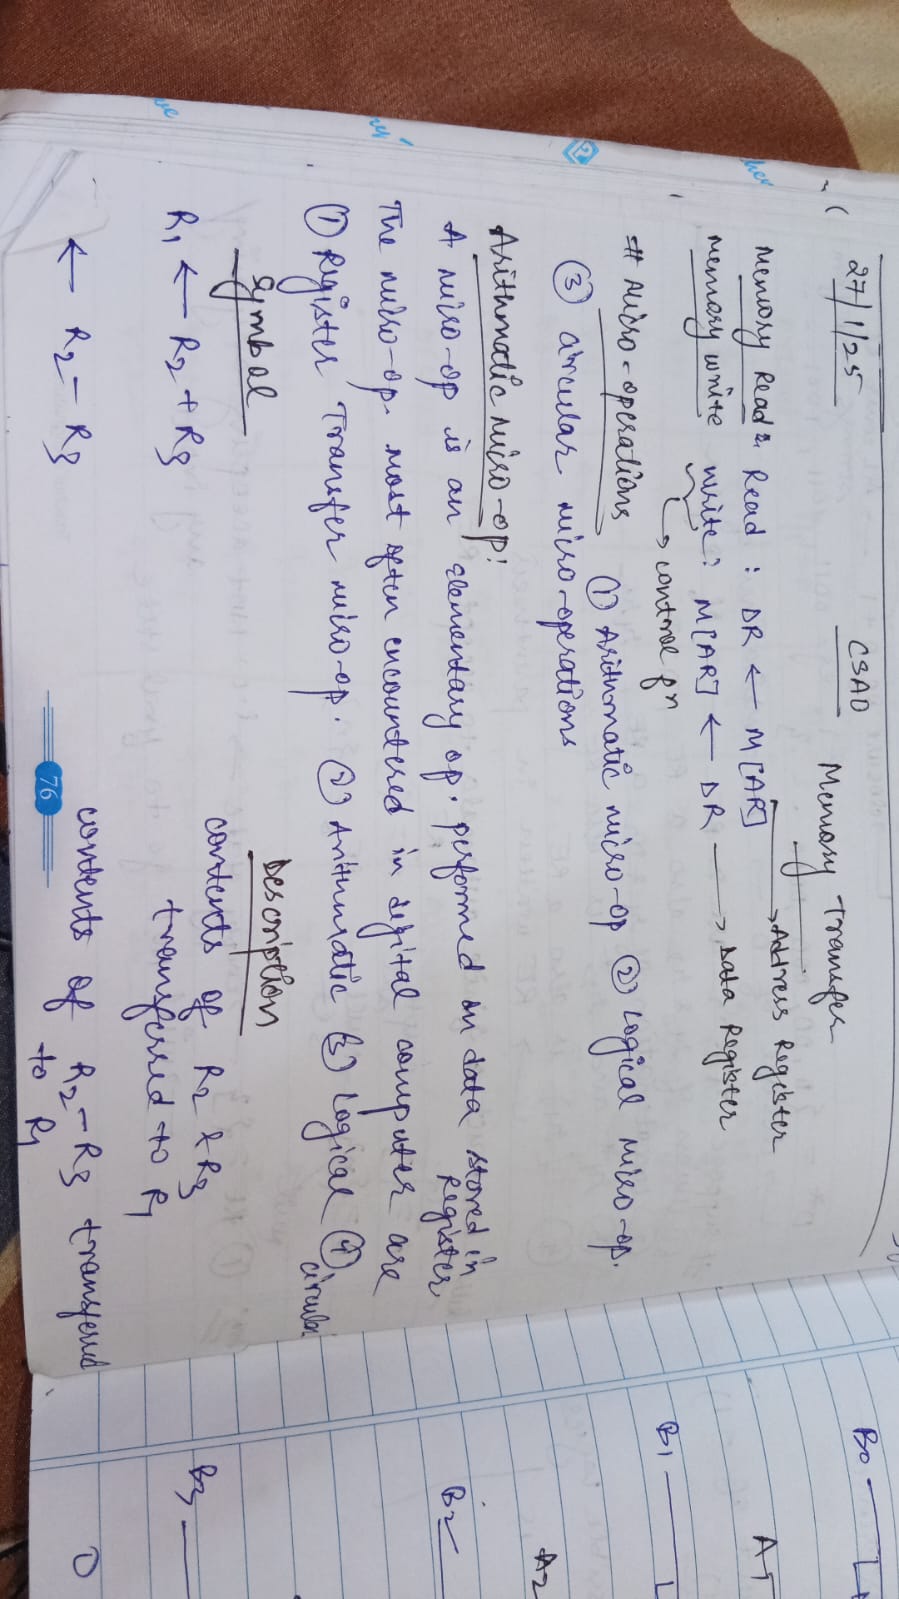 27/1/25
CSAO
Memory Transfer
→ Address Register
Memory Read: Read : DR ← M[AR]
Memory write write: M[AR] ← DR → Data Register
→ control fn
# Micro-operations ① Arithmatic micro-op ② Logical micro-op.
③ circular micro-operations
Arithmatic micro-op:
A micro-op is an elementary op. performed on data stored in
Register
The micro-op. most often encountered in digital computer are
① Register Transfer micro-op. ② Arithmatic ③ Logical ④
circular
Symbol Description
R1 ← R2 + R3 contents of R2 + R3
transferred to R1
← R2 - R3 contents of R2 - R3 transferred
to R1
76
B0
A1
B1
A2
B2
B3
0